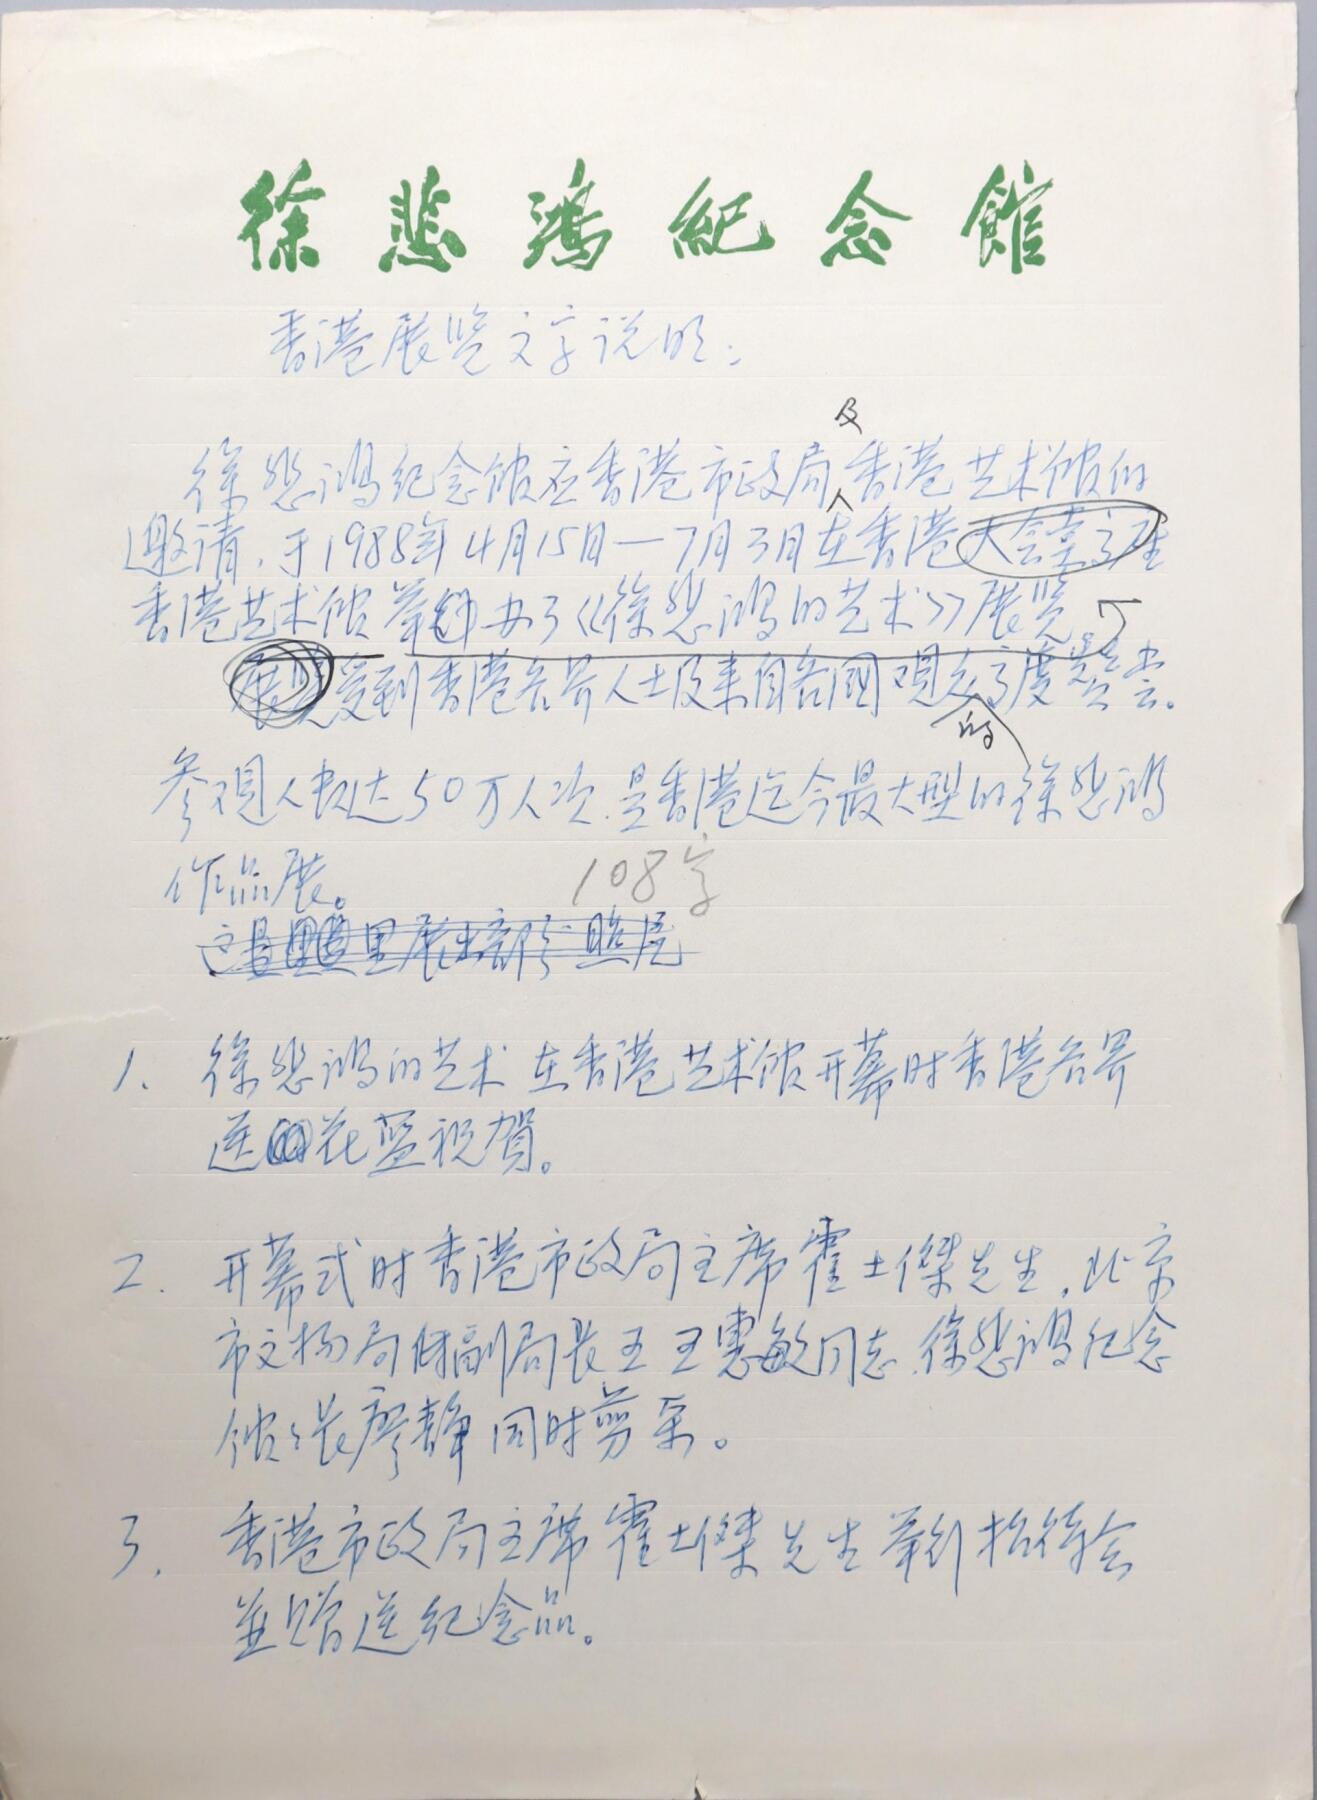 徐悲鴻紀念館
香港展览文字说明：
及
徐悲鸿纪念馆应香港市政局香港艺术馆的
邀请，于1988年4月15日—7月3日在香港大会堂高座
香港艺术馆举办了《徐悲鸿的艺术》展览
展览受到香港各界人士及来自各國观众高度赞尝。
的
参观人数达50万人次.是香港迄今最大型的徐悲鸿
作品展。
108字
里展出部分照片
1. 徐悲鸿的艺术在香港艺术馆开幕时香港各界
送花蓝祝賀。
2. 开幕式时香港市政局主席霍士傑先生，北京
市文物局副局长王惠敏同志.徐悲鸿纪念
馆馆长廖静同时剪采。
3. 香港市政局主席霍士傑先生举行招待会
並赠送纪念品。